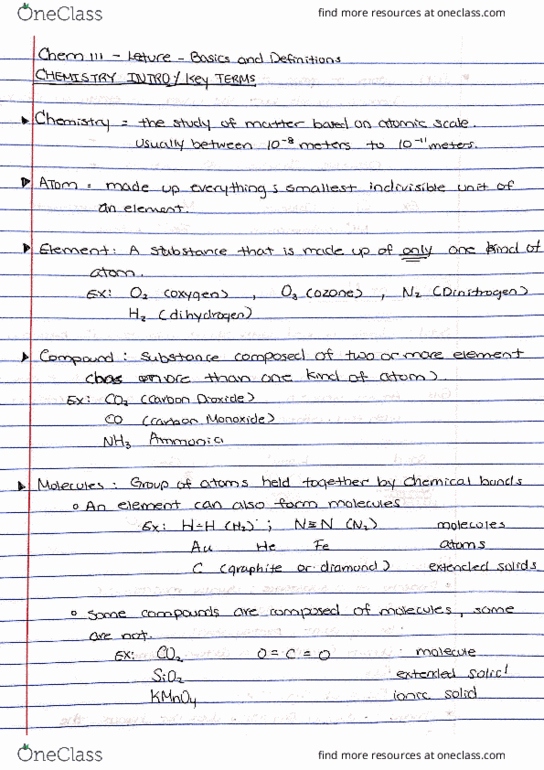 OneClass find more resources at oneclass.com
Chem 111 - Leture - Basics and Definitions
CHEMISTRY INTRO / Key TERMS
Chemistry = the study of matter based on atomic scale.
Usually between 10⁻⁸ meters to 10⁻¹¹ meters.
Atom = made up everything s smallest indivisible unit of
an element.
Element: A substance that is made up of only one kind of
atom.
Ex: O₂ (oxygen) , O₃ (ozone) , N₂ (Dinitrogen)
H₂ (dihydrogen)
Compound: Substance composed of two or more element
(has more than one kind of atom).
Ex: CO₂ (Carbon Dioxide)
CO (carbon Monoxide)
NH₃ Ammonia
Molecules: Group of atoms held together by chemical bonds
An element can also form molecules
Ex: H-H (H₂) ; N≡N (N₂) molecules
Au He Fe atoms
C (graphite or diamond) extended solids
Some compounds are composed of molecules, some
are not.
Ex: CO₂ O=C=O molecule
SiO₂ extended solid
KMnO₄ ionic solid
OneClass find more resources at oneclass.com